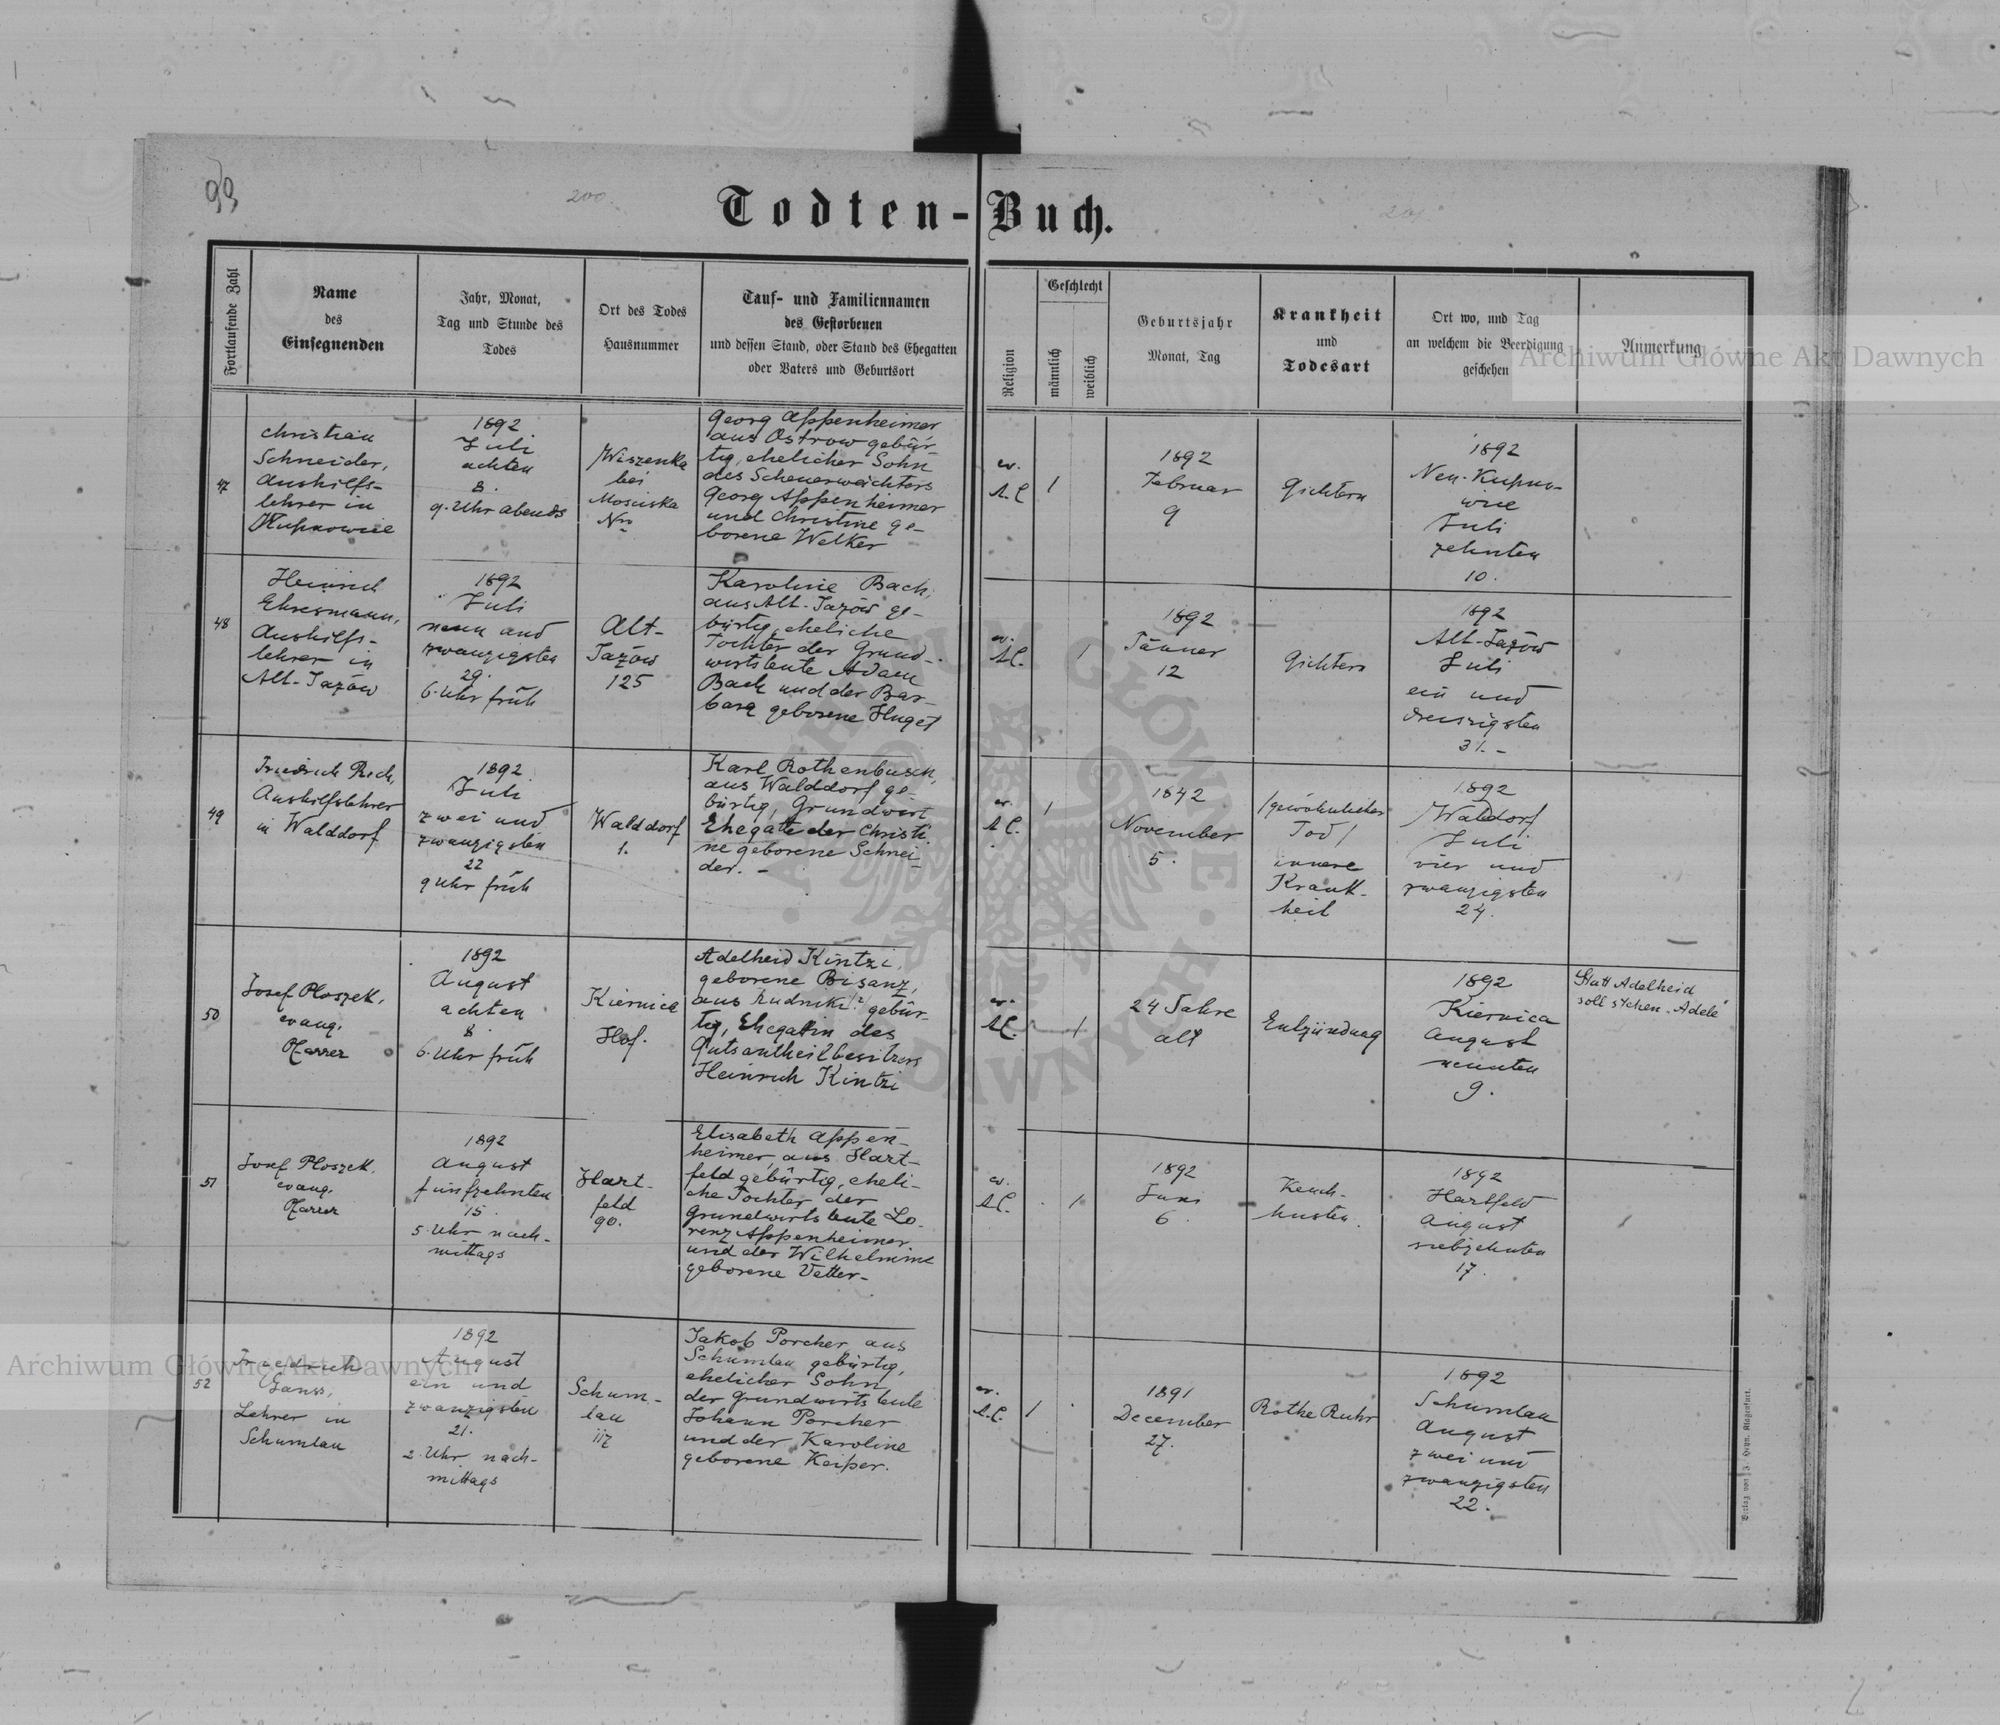 93
200
201
Todten-Buch.
Fortlaufende Zahl
Name
des
Einsegnenden
Jahr, Monat,
Tag und Stunde des
Todes
Ort des Todes
Hausnummer
Tauf- und Familiennamen
des Gestorbenen
und dessen Stand, oder Stand des Ehegatten
oder Vaters und Geburtsort
Religion
Geschlecht
männlich
weiblich
Geburtsjahr
Monat, Tag
Krankheit
und
Todesart
Ort wo, und Tag
an welchem die Beerdigung
geschehen
Anmerkung
Archiwum Główne Akt Dawnych
47
Christian
Schneider,
Aushilfs-
lehrer in
Kupnowice
1892
Juli
achten
8.
9. Uhr abends
Wiszenka
bei
Mosciska
Nro
Georg Appenheimer
aus Ostrow gebür-
tig, ehelicher Sohn
des Scheuerwächters
Georg Appenheimer
und Christine ge-
borene Welker
ev.
A.C.
1
1892
Februar
9
Gichtern
1892
Neu-Kupno-
wice
Juli
zehnten
10.
48
Heinrich
Ehresmann,
Aushilfs-
lehrer in
Alt-Jazów
1892
Juli
neun und
zwanzigsten
29.
6. Uhr früh
Alt-
Jazów
125
Karoline Bach,
aus Alt-Jazów ge-
bürtig, eheliche
Tochter der Grund-
wirtsleute Adam
Bach und der Bar-
bara geborene Huget
ev.
A.C.
1
1892
Jänner
12
Gichtern
1892
Alt-Jazów
Juli
ein und
dreiszigsten
31.-
49
Friedrich Rech,
Aushilfslehrer
in Walddorf
1892
Juli
zwei und
zwanzigsten
22
9 Uhr früh
Walddorf
1.
Karl Rothenbusch,
aus Walddorf ge-
bürtig, Grundwirt
Ehegatte der Christi-
ne geborene Schnei-
der. -
ev.
A.C.
1
1842
November
5.
/gewöhnlicher
Tod/
innere
Krank-
heit
1892
Walddorf
Juli
vier und
zwanzigsten
24.
50
Josef Ploszek,
evang.
Pfarrer
1892
August
achten
8.
6. Uhr früh
Kiernica
Hof.
Adelheid Kintzi,
geborene Bisanz,
aus Rudniki(?) gebür-
tig, Ehegattin des
Gutsantheilbesitzers
Heinrich Kintzi
ev.
A.C.
1
24 Jahre
alt
Entzündung
1892
Kiernica
August
neunten
9.
Statt Adelheid
soll stehen „Adele"
51
Josef Ploszek,
evang.
Pfarrer
1892
August
fünfzehnten
15.
5. Uhr nach-
mittags
Hart-
feld
90.
Elisabeth Appen-
heimer, aus Hart-
feld gebürtig, eheli-
che Tochter der
Grundwirtsleute Lo-
renz Appenheimer
und der Wilhelmine
geborene Vetter-
ev.
A.C.
1
1892
Juni
6.
Keuch-
husten.
1892
Hartfeld
August
siebzehnten
17.
52
Friedrich
Ganss,
Lehrer in
Schumlau
1892
August
ein und
zwanzigsten
21.
2. Uhr nach-
mittags
Schum-
lau
Jakob Porcher aus
Schumlau gebürtig,
ehelicher Sohn
der Grundwirtsleute
Johann Porcher
und der Karoline
geborene Keiper.
ev.
A.C.
1
1891
December
27.
Rothe Ruhr
1892
Schumlau
August
zwei und
zwanzigsten
22.
Archiwum Główne Akt Dawnych
Verlag von J. Heyn, Klagenfurt.
ARCHIWUM GŁÓWNE AKT DAWNYCH